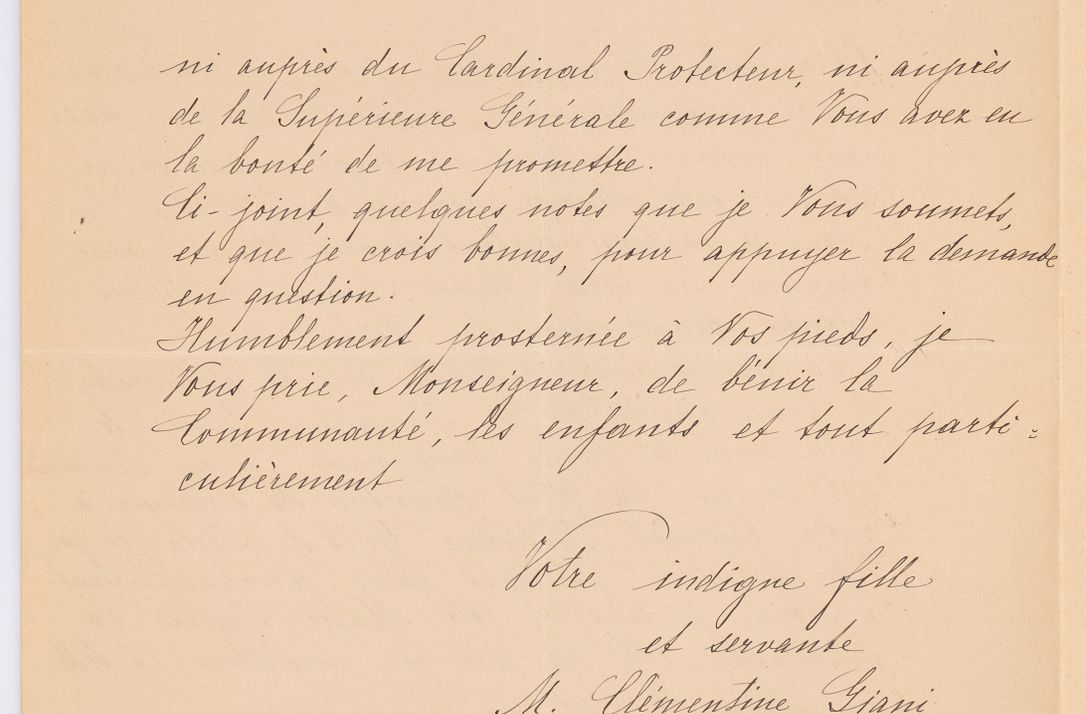 ni auprès du Cardinal Protecteur, ni auprès
de la Supérieure Générale comme Vous avez eu
la bonté de me promettre.
Ci-joint, quelques notes que je Vous soumets,
et que je crois bonnes, pour appuyer la demande
en question.
Humblement prosternée à Vos pieds, je
Vous prie, Monseigneur, de bénir la
Communauté, les enfants et tout parti=
culièrement
Votre indigne fille
et servante
M. Clémentine Giani